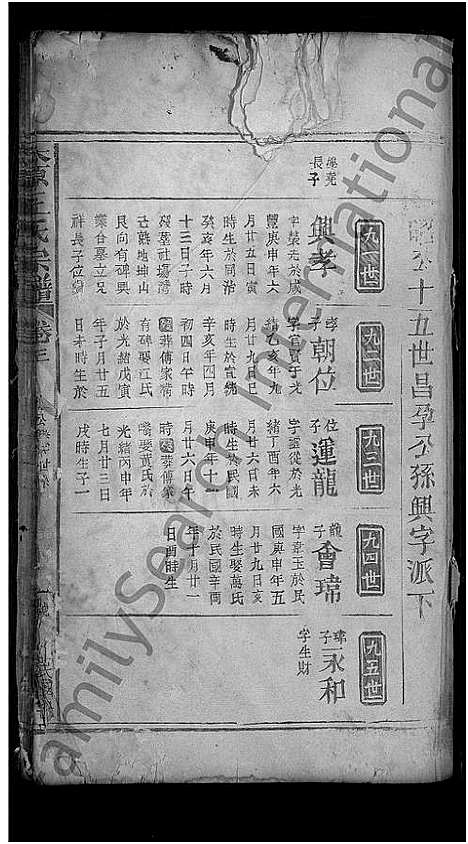 公十五世昌孕公孫興字派下
九一世
長子
興孝
字榮光於咸
豐庚申年六
月廿五日寅
時生於同治
癸亥年六月
十三日子時
艮向有碑興
祥長子位
九二世
孝子
朝位
緒乙亥年九
月廿九日巳
時生於宣統
辛亥年四月
初四日午時
葬傅家灣
有碑娶江氏
於光緒戊寅
年子月廿五
日未時生於
九三世
位子
運龍
字雲從於光
緒丁酉年六
月廿六日未
時生於民國
庚申年十一
月廿六日辰
時葬傅家
娶黃氏於
光緒丙申年
七月廿三日
戌時生子一
九四世
龍子
會瑋
字韋玉於民
國庚申年五
月廿九日亥
時生娶萬氏
於民國辛酉
年十月廿一
日酉時生
九五世
瑋子
永和
字生財
太原王氏宗譜
卷三
FamilySearch International